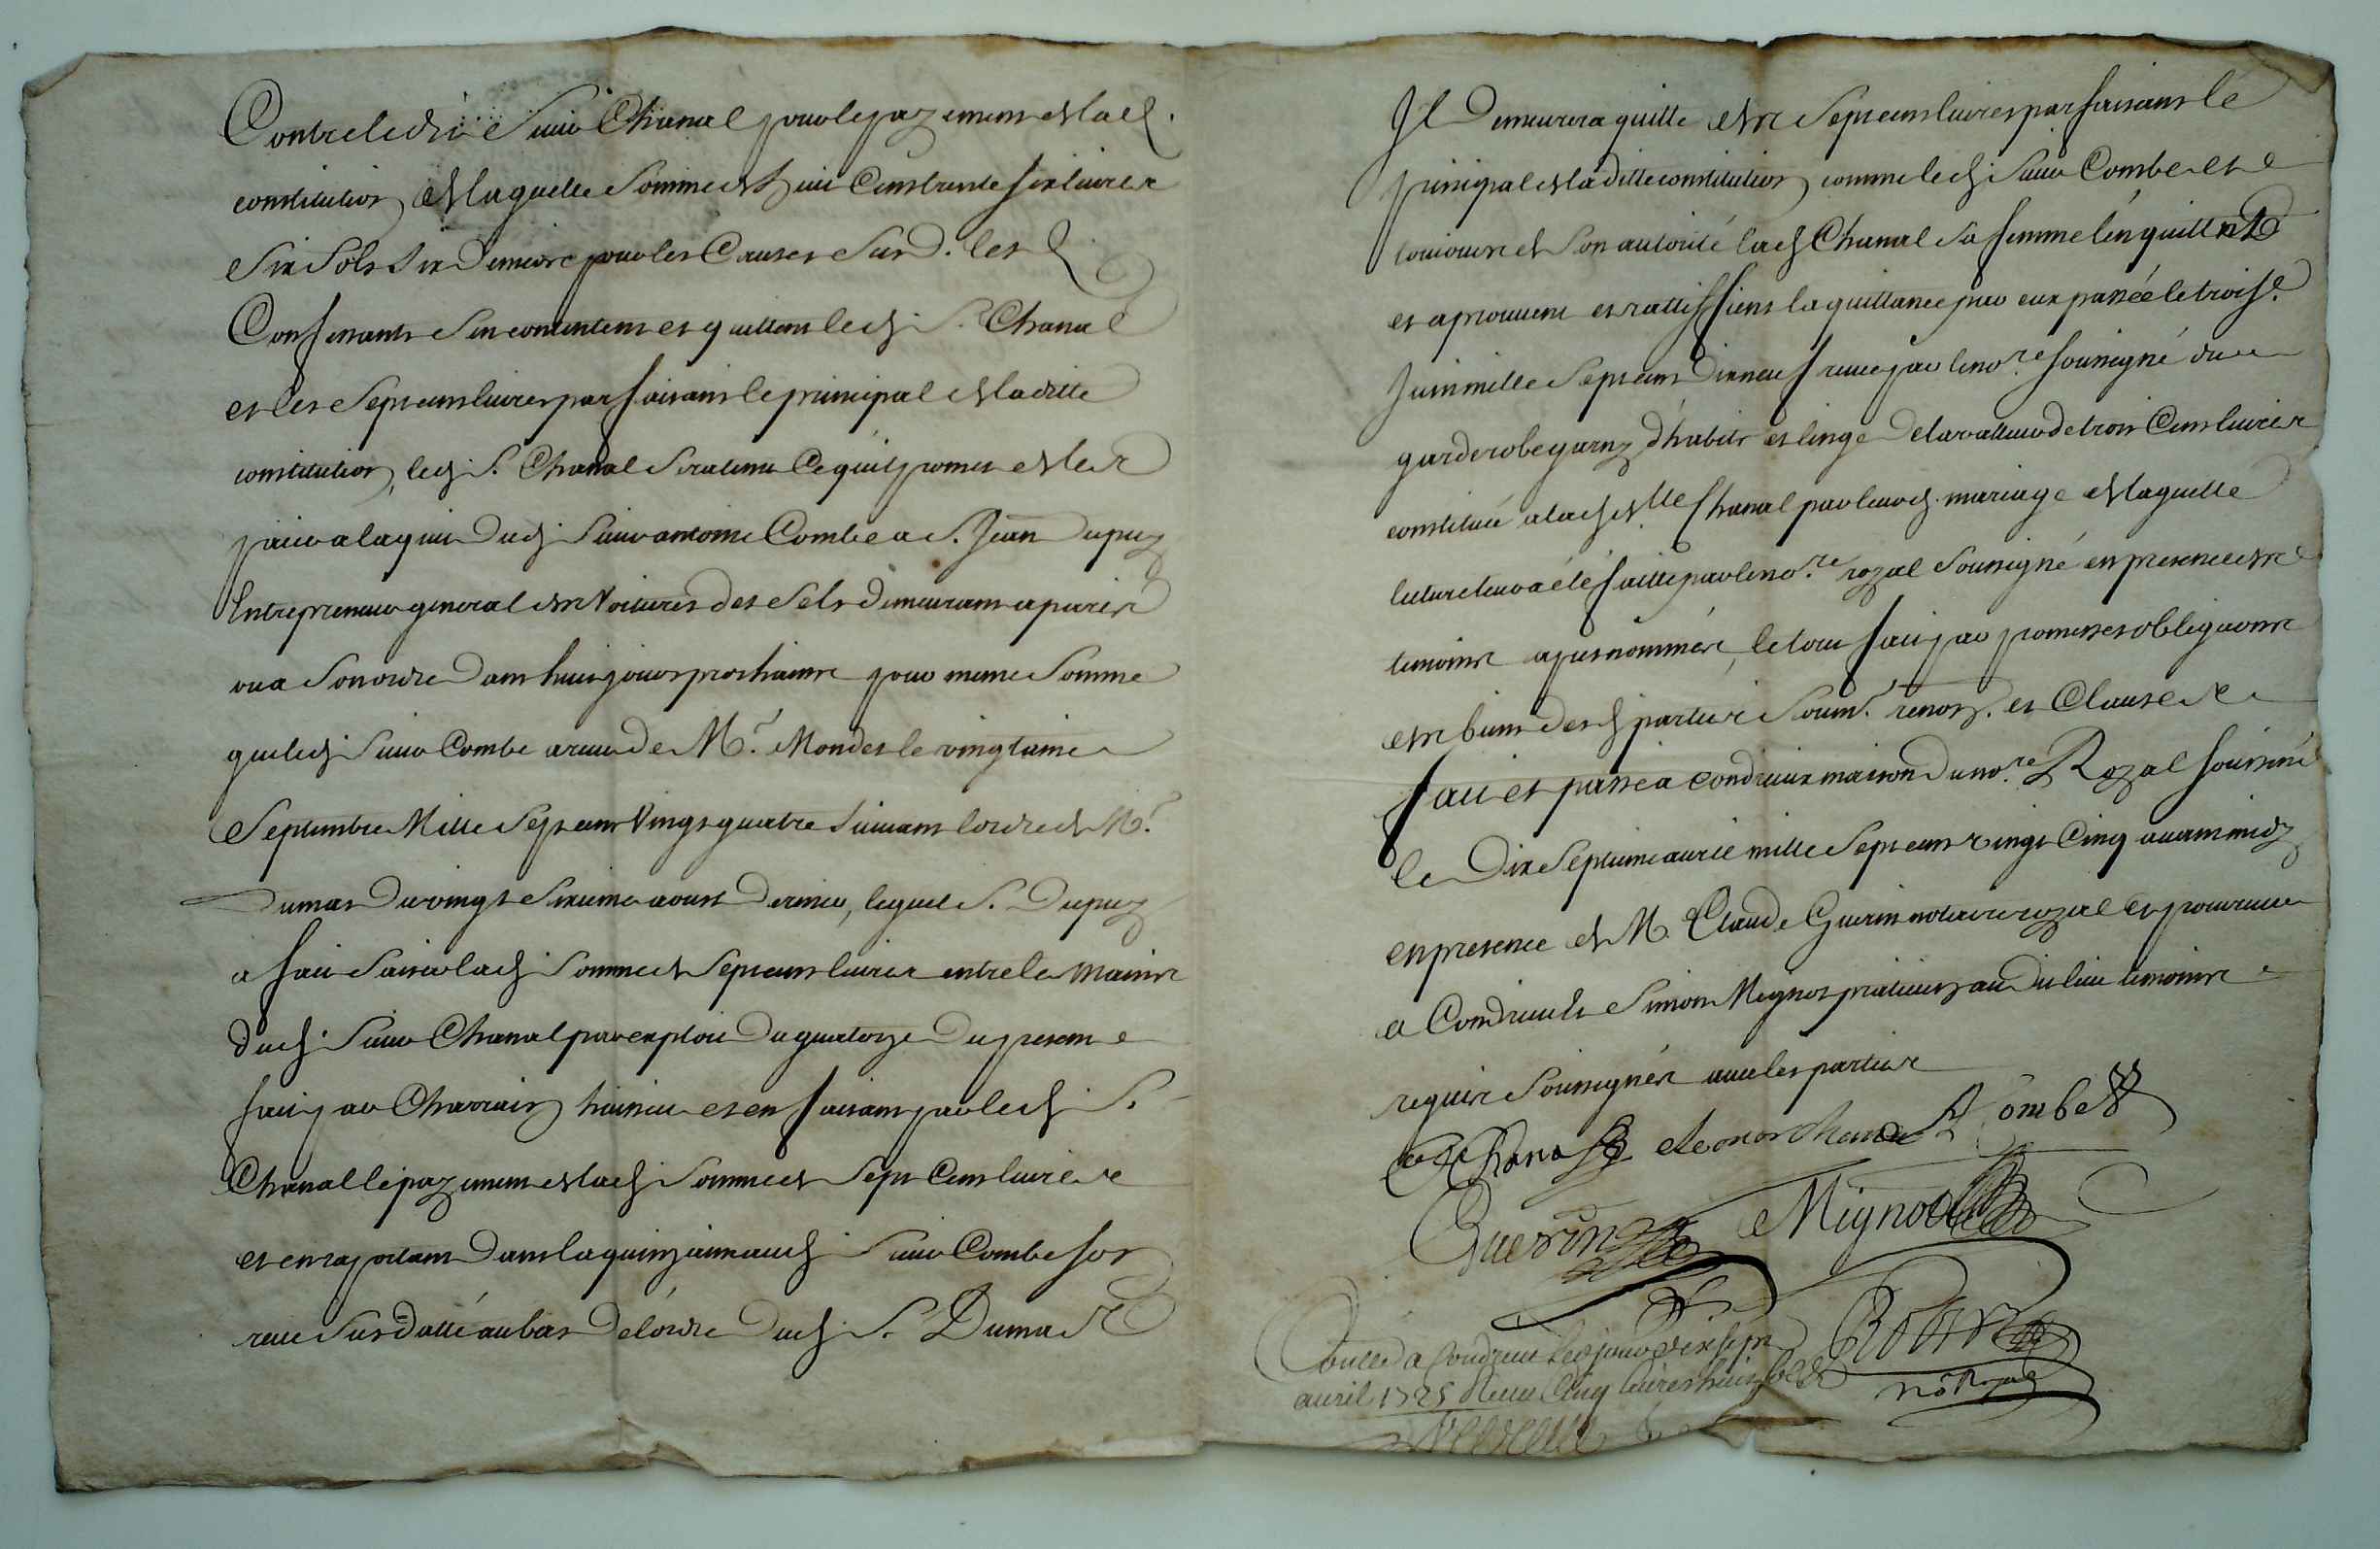 Contre ledit Sieur Chanal pour le payement de lad.
constitution, de laquelle somme de huit Cens trente six livres
six sols six deniers pour les causes susd. les d.
Confessants sen contentent et quittent led. S. Chanal
et les sept cens livres parfaisant le principal de laditte
constitution, led. S. Chanal sera tenu Ce quil promet de les
paier a laquit dud. Sieur antoine Combe a S. Jean Dupuy
Entrepreneur general des Voitures des Sels demeurant a paris
ou a son ordre dans huit jours prochains pour meme somme
que led. Sieur Combe a receu de Mr. Mondet le vingtaine
Septembre Mille Sept cens Vingt quatre suivant lordre de Mr.
Dumas du vingt sixieme aoust dernier, lequel S. Dupuy
a fait saisir lad. somme de sept cens livres entre les mains
dud. Sieur Chanal par exploit du quatorze du present
fait par huissier et en faisant par led. S.
Chanal le payement de lad. somme de sept Cens livres
et en raportant dans la quinzaine aud. Sieur Combe son
receu sus datté au bas de lordre dud. S. Dumas
Il demeurera quitte des sept cens livres parfaisant le
principal de laditte constitution, comme led. Sieur Combe et
toujours de son autorité lad. Chanal sa femme len quittent
et aprouvent et rattiffient la quittance par eux passée le troise.
Juin mille sept cens dix neuf receue par le nore. soussigné du
garderobe garny dhabits et linge de la valleur de trois Cens livres
constitué a lad. dlle Chanal par leurd. mariage de laquelle
lecture leur a été faitte par le nore. royal soussigné en presence des
temoins apres nommés, le tout fait par promesses obligaons
des biens desd. parties soum. renon. et Clauses
fait et passé a condrieux maison du nore. Royal soussiné
le dix septieme avril mille sept cens vingt Cinq avant midy
en presence de M. Claude Guerin notaire royal et procureur
a Condrieu et Simon Mignot praticien audit lieu temoins
requis soussignés avec les parties
Chanal eleonor Chanal Combe
Guerin Mignot
Coulle a Condrieu le jour dix sept
avril 1725 Receu Cinq livres huit sols
no. Royal